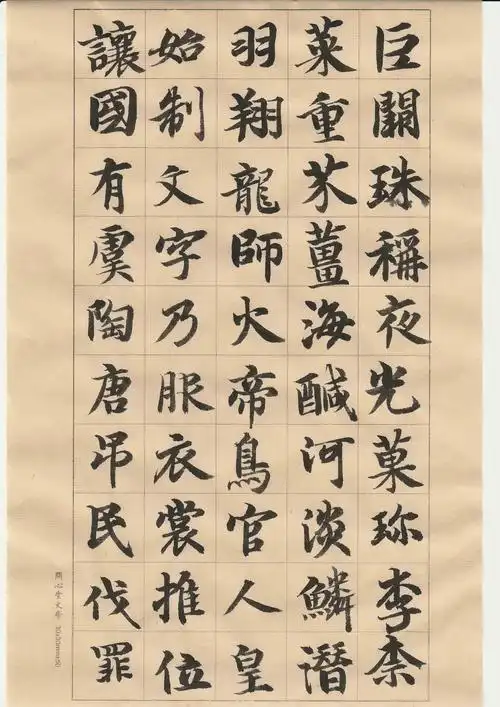 巨闕珠稱夜光菓珍李柰
菜重芥薑海醎河淡鱗潛
羽翔龍師火帝鳥官人皇
始制文字乃服衣裳推位
讓國有虞陶唐吊民伐罪